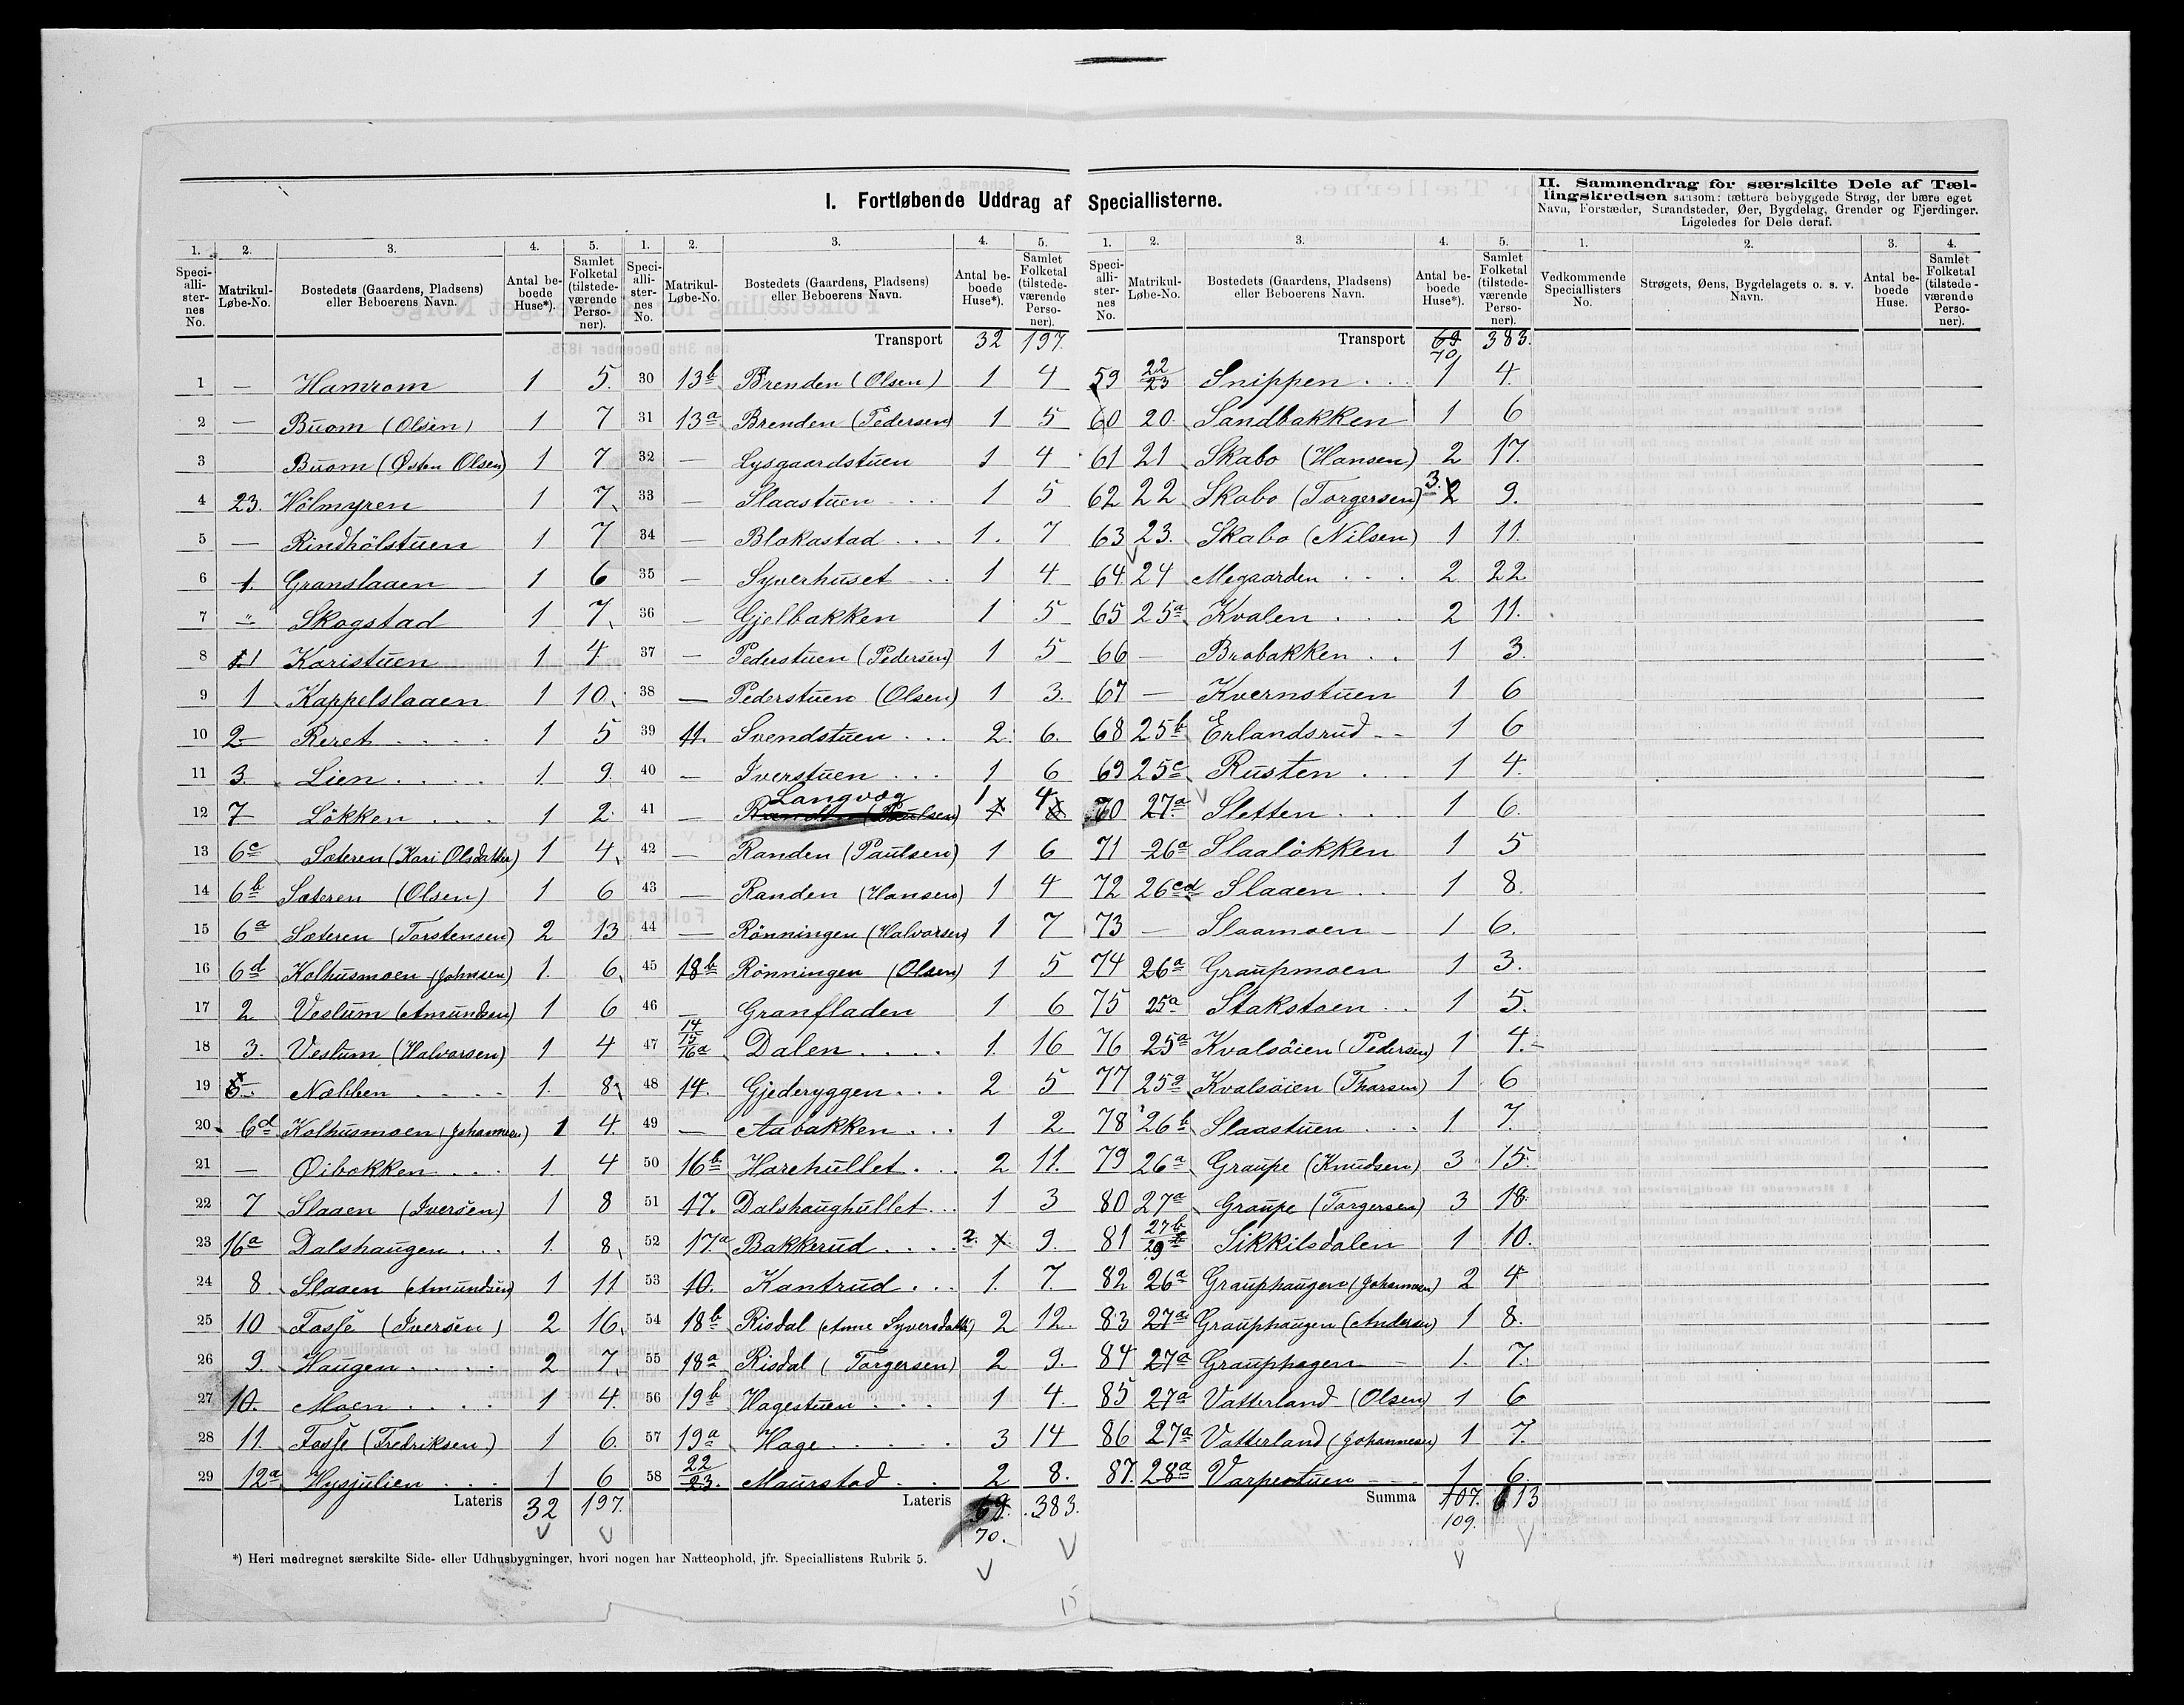 I. Fortløbende Uddrag af Speciallisterne.
II. Sammendrag for særskilte Dele af Tæl-
lingskredsen saasom: tættere bebyggede Strøg, der bære eget
Navn, Forstæder, Strandsteder, Øer, Bygdelag, Grender og Fjerdinger.
Ligeledes for Dele deraf.
1. 2. 3. 4. 5.
Speciallisternes No. Matrikul-Løbe-No. Bostedets (Gaardens, Pladsens) eller Beboerens Navn. Antal beboede Huse*). Samlet Folketal (tilstedeværende Personer).
1 — Hamrom 1 5.
2 — Buom (Olsen) 1 7
3 Buom (Østen Olsen) 1 7
4 23. Hölmyren 1 7
5 — Rindhölstuen 1 7
6 1. Granslaaen 1 6
7 " Skogstad 1 7
8 1 Karistuen 1 4
9 1 Kappelslaaen 1 10.
10 2 Reret 1 5
11 3. Lien 1. 9.
12 7 Lökken 1 2.
13 6c Sæteren (Kari Olsdatter) 1 4
14 6b Sæteren (Olsen) 1 6
15 6a Sæteren (Torstensen) 2 13
16 6d Kolhusmoen (Johnsen) 1. 6
17 2 Veslum (Amundsen) 1 6
18 3. Veslum (Halvorsen) 1 4
19 Nabben 1. 8
20 6d Kolhusmoen (Johannesen) 1 4.
21 — Øibakken 1. 4
22 7 Slaaen (Iversen) 1 8
23 16a Dalshaugen 1. 8
24 8 Slaaen (Amundsen) 1 11
25 10 Fosse (Iversen) 2 16
26 9. Haugen 2 7
27 10. Moen 1 4.
28 11. Fosse (Fredriksen.) 1 6.
29 12a Hysjulien 1 6
Lateris 32 197.
1. 2. 3. 4. 5.
Speciallisternes No. Matrikul-Løbe-No. Bostedets (Gaardens, Pladsens) eller Beboerens Navn. Antal beboede Huse*). Samlet Folketal (tilstedeværende Personer).
Transport 32 197.
30 13b Brenden (Olsen) 1 4
31 13a Brenden (Pedersen) 1 5
32 — Lysgaardstuen 1 4
33 — Slaastuen 1 5
34 — Blakastad 1. 7
35 — Syverhuset 1 4
36 — Gjelbakken 1 5
37 — Pederstuen (Pedersen) 1 5
38 — Pederstuen (Olsen) 1 3.
39 11. Svendstuen 2. 6.
40 — Iverstuen 1 6
41 — Langvog 1 4
42 — Randen (Paulsen) 1 6
43 — Randen (Hansen) 1 4
44 — Rönningen (Halvorsen) 1 7
45 18b Rönningen (Olsen) 1 5
46 — Granfladen 1 6
47 14 15 16a Dalen 1. 16
48 14. Gjederyggen 2 5
49 — Aabakken 1 2
50 16b Harehullet 2 11.
51 17. Dalshaughullet 1 3
52 17a Bakkerud 2. 9.
53 10. Kantrud 1. 7.
54 18b Risdal (Anne Syversdatter) 2 12.
55 18a Risdal (Torgersen) 2 9.
56 19b Hagestuen 1 4.
57 19a Hage 3 14
58 22 23. Maurstad 2 8.
Lateris 69. 383.
70.
1. 2. 3. 4. 5.
Speciallisternes No. Matrikul-Løbe-No. Bostedets (Gaardens, Pladsens) eller Beboerens Navn. Antal beboede Huse*). Samlet Folketal (tilstedeværende Personer).
Transport 69 383.
70
59 22 23 Snippen 1 4.
60 20. Sandbakken 1 6
61 21 Skabo (Hansen) 2 17.
62 22 Skabo (Torgersen) 3. 2 9.
63 23. Skabo (Nilsen) 1 11.
64 24 Megaarden 2 22
65 25a Kvalen 2 11.
66 — Brobakken 1 3.
67 — Kvernstuen 1 6
68 25b Erlandsrud 1 6
69 25c Rusten 1 4.
70 27a Sletten 1 6.
71 26a Slaalökken 1 5
72 26cd Slaaen 1 8.
73 — Slaamoen 1 6.
74 26a Graupmoen 1 3.
75 25a Stakstoen 1 5.
76 25a Kvalsöien (Pedersen) 1 4.
77 25a Kvalsöien (Thorsen) 1 6
78 26b Slaastuen 1 7.
79 26a Graupe (Knudsen) 3 15.
80 27a Graupe (Torgersen) 3 18.
81 27b 29 Sikkilsdalen 1 10.
82 26a Grauphaugen (Johannesen) 2 4
83 27a Grauphaugen (Andersen) 1 8.
84 27a Grauphagen 1. 7.
85 27a Vatterland (Olsen) 1 6
86 27a Vatterland (Johannesen) 1 7.
87. 28a Varpestuen 1 6.
Summa 107. 613
109.
1. 2. 3. 4.
Vedkommende Speciallisters No. Strøgets, Øens, Bygdelagets o. s. v. Navn. Antal beboede Huse. Samlet Folketal (tilstedeværende Personer).
*) Heri medregnet særskilte Side- eller Udhusbygninger, hvori nogen har Natteophold, jfr. Speciallistens Rubrik 5.